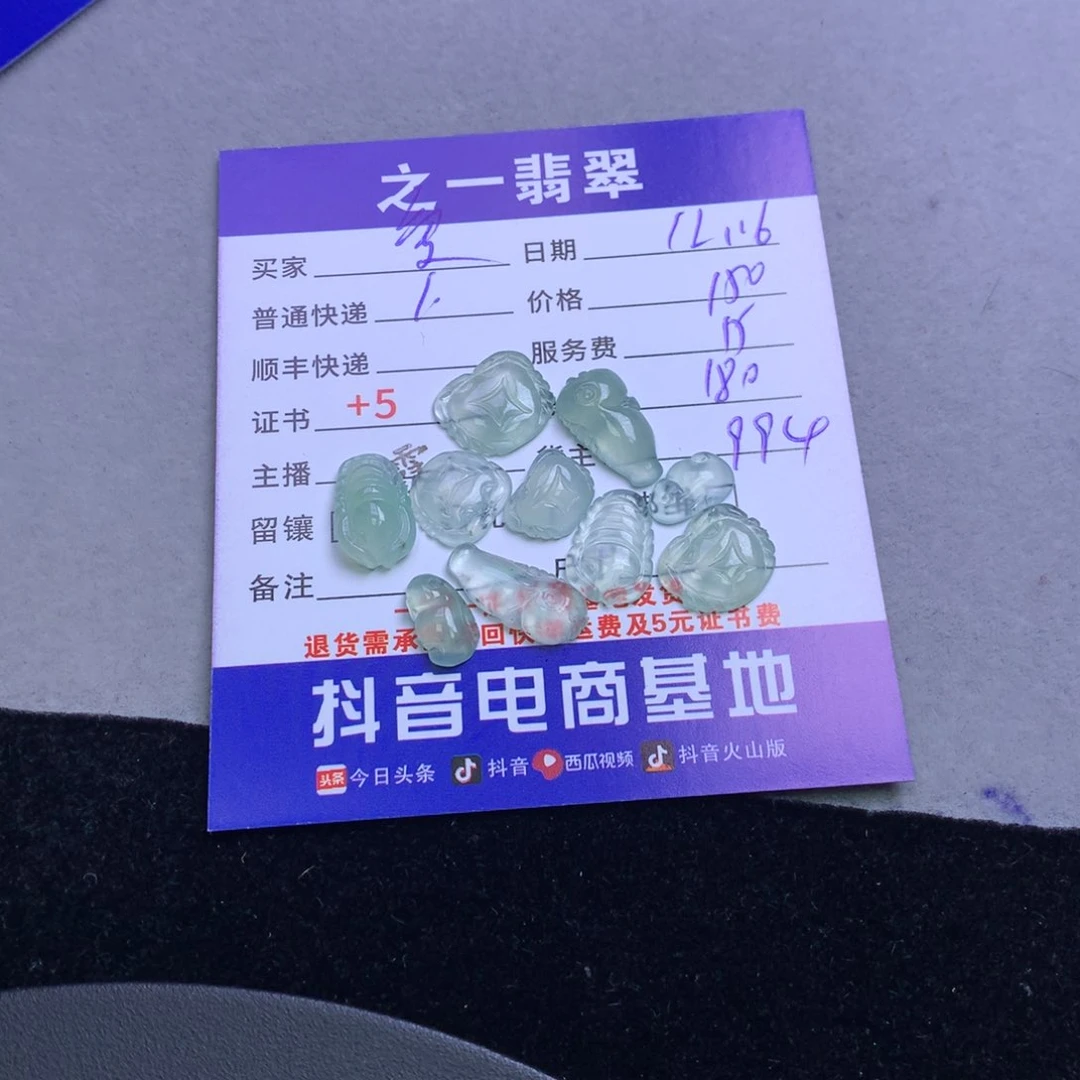 之一翡翠
买家 日期 12.16
普通快递 1. 价格 150
顺丰快递 服务费 15
证书 +5 180
主播 霞 货主 994
留镶
备注
退货需承 回快 运费及5元证书费
抖音电商基地
头条 今日头条 抖音 西瓜视频 抖音火山版